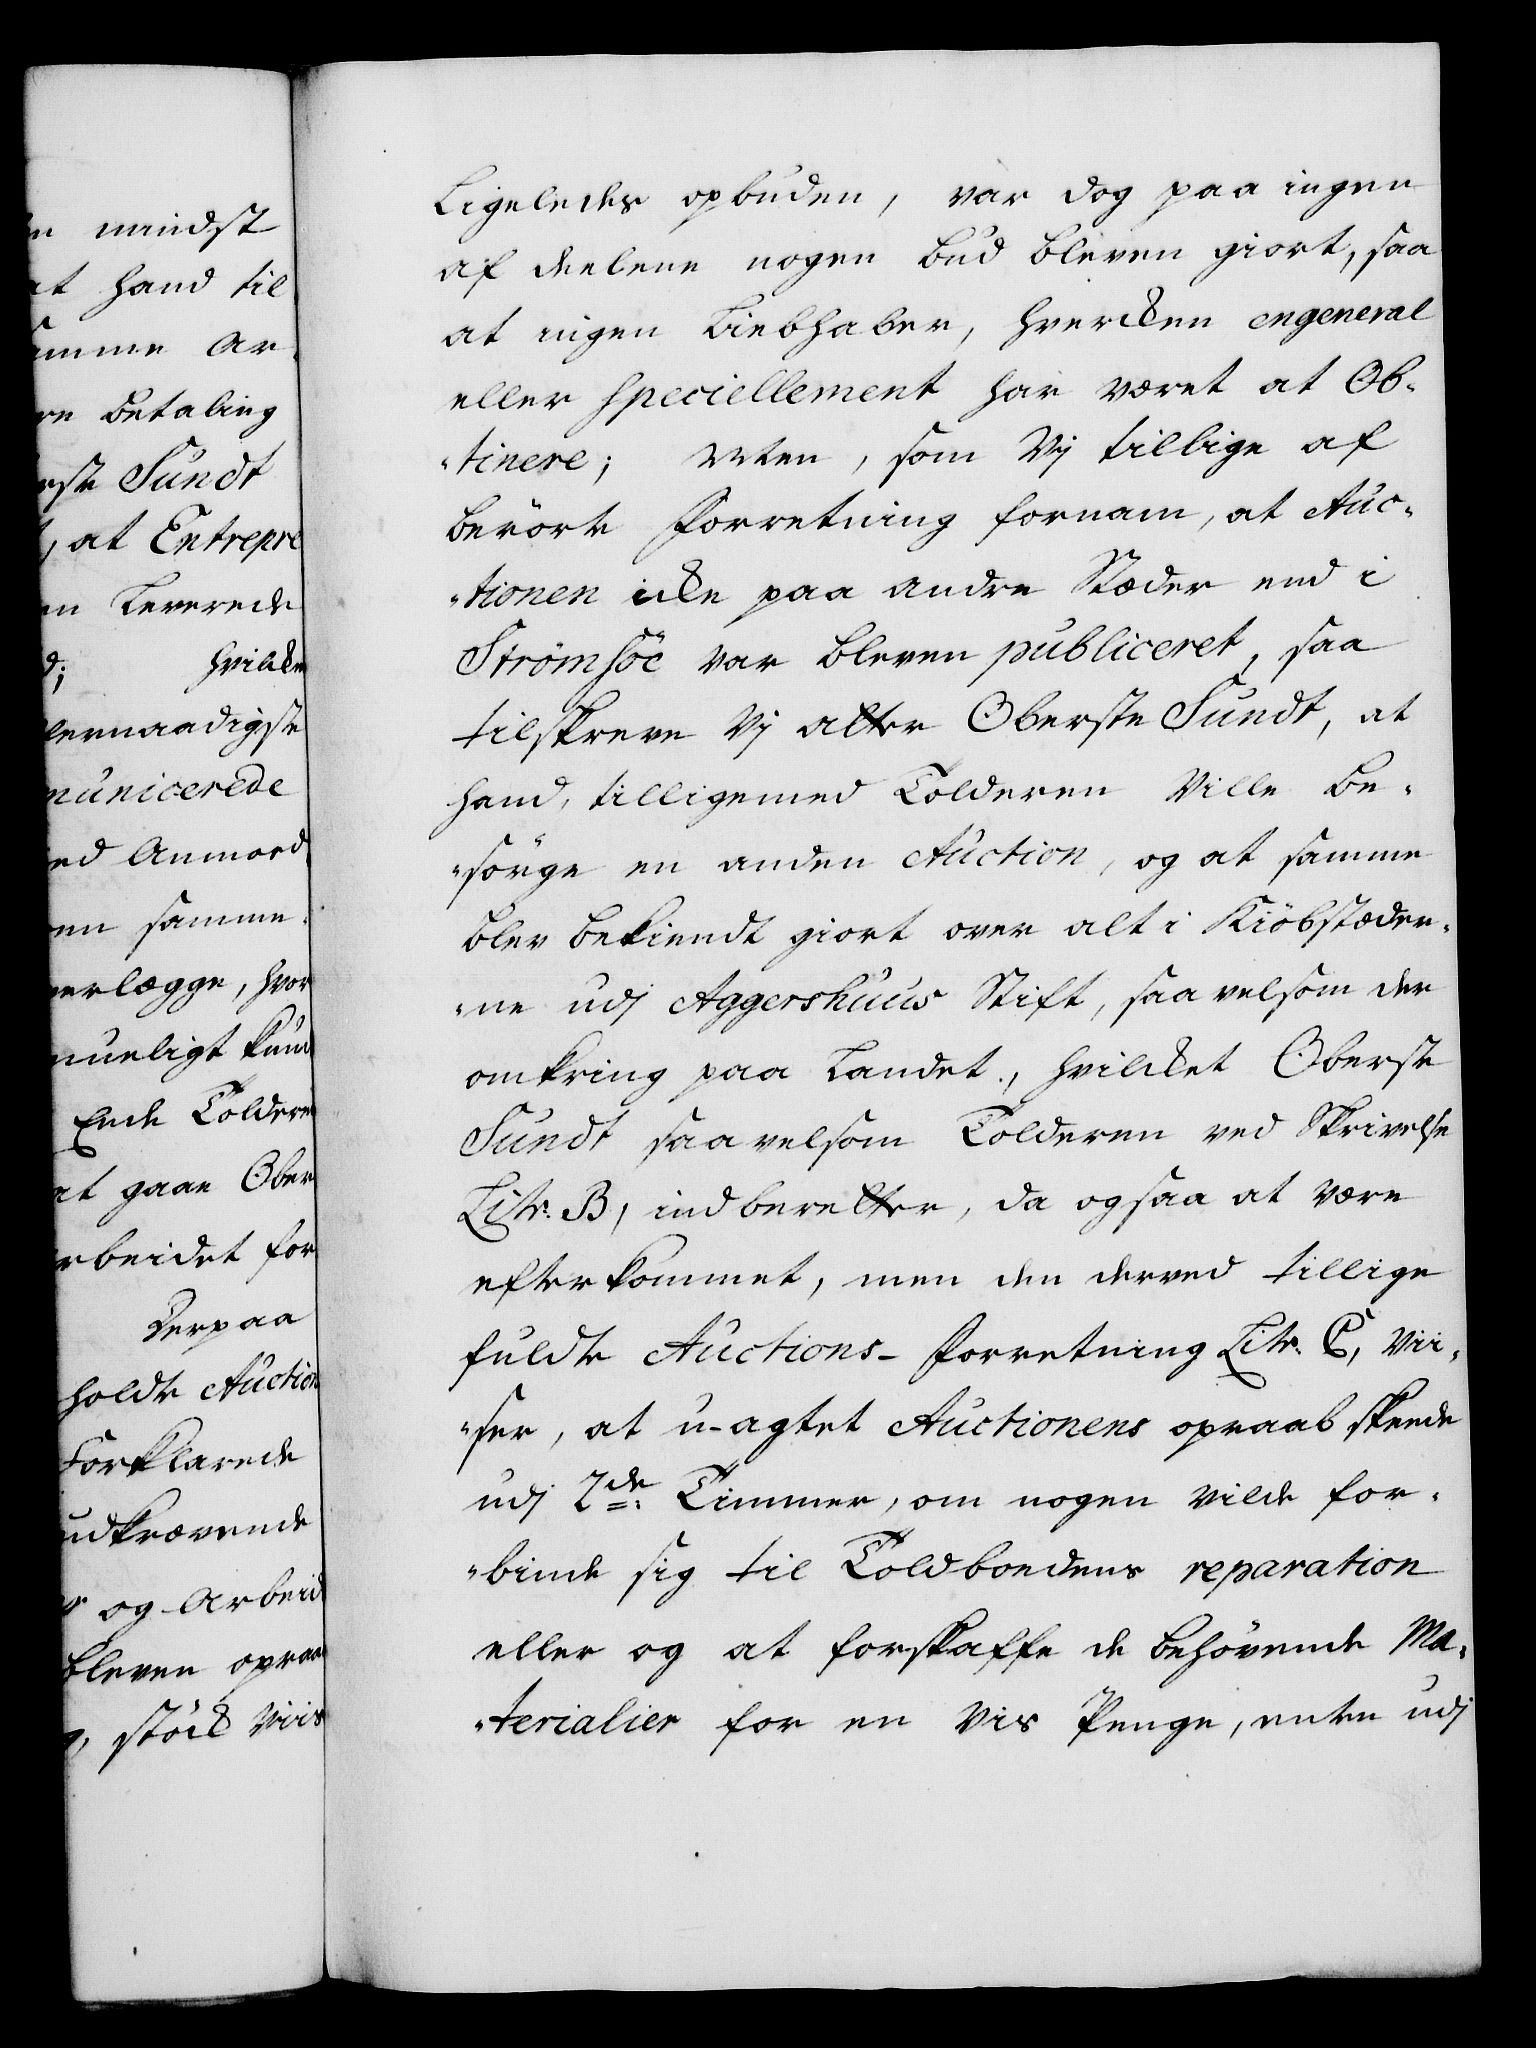 n mindst
at hand til
amme Ar
re betaling
rste Sundt
, at Entrepre
en Leverede
d; hvilcken
lernaadigste
municerede
ed Anmod
en samme
erlægge, hvor
mueligt kun
Ende Tolderen
at gaae Ober
rbeidet for
Derpaa
holdte Auction
Forklarede
udkrævende
og Arbeid
bleven opraa
, stöck viis
Ligeledes opbuden, var dog paa ingen
af deelene nogen bud bleven giort, saa
at ingen Liebhaber, hvercken engeneral
eller speciellement har været at Ob-
-tinere; Men, som Vj tillige af
berörte Forretning fornam, at Auc-
-tionen icke paa andre Stæder end i
Strömsöe var bleven publiceret, saa
tilskreve Vj atter Oberste Sundt, at
hand, tilligemed Tolderen ville be-
-sörge en anden Auction, og at samme
blev bekiendt giort over alt i Kiöbstæder-
-ne udj Aggershuus Stift, saavelsom der
omkring paa Landet, hvilcket Oberste
Sundt saavelsom Tolderen ved Skrivelse
Litr. B, indberetter, da ogsaa at være
efterkommet, men den derved tillige
fuldte Auctions-Forretning Litr. C, vii-
-ser, at u-agtet Auctionens opraab skeede
udj 2de Timmer, om nogen vilde for-
-binde sig til Toldboedens reparation
eller og at forskaffe de behövende Ma-
-terialier for en vis Penge, enten udj